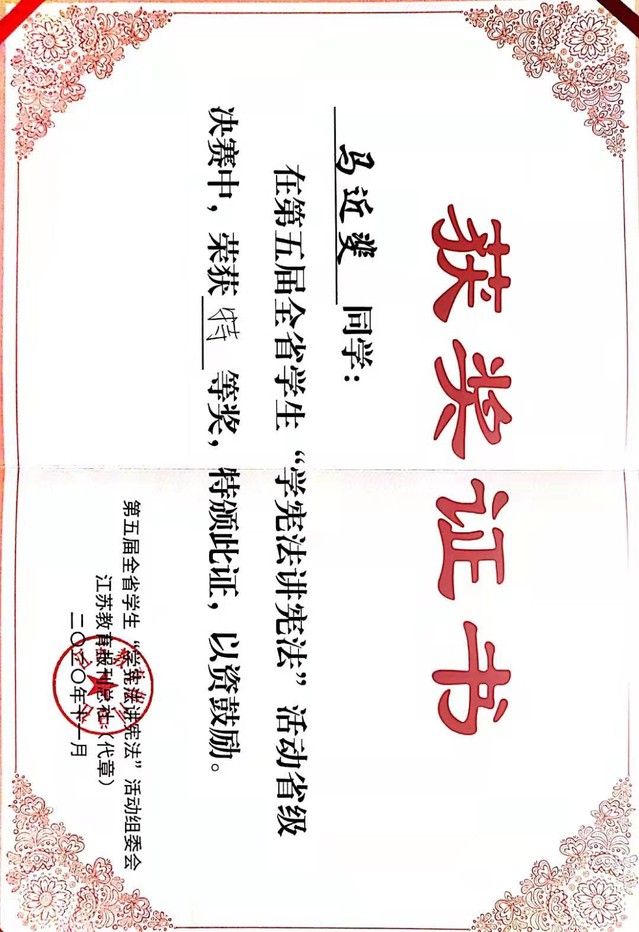 获奖证书
马近斐 同学：
在第五届全省学生“学宪法讲宪法”活动省级
决赛中，荣获 特 等奖，特颁此证，以资鼓励。
第五届全省学生“学宪法讲宪法”活动组委会
江苏教育报刊总社（代章）
二〇二〇年十一月